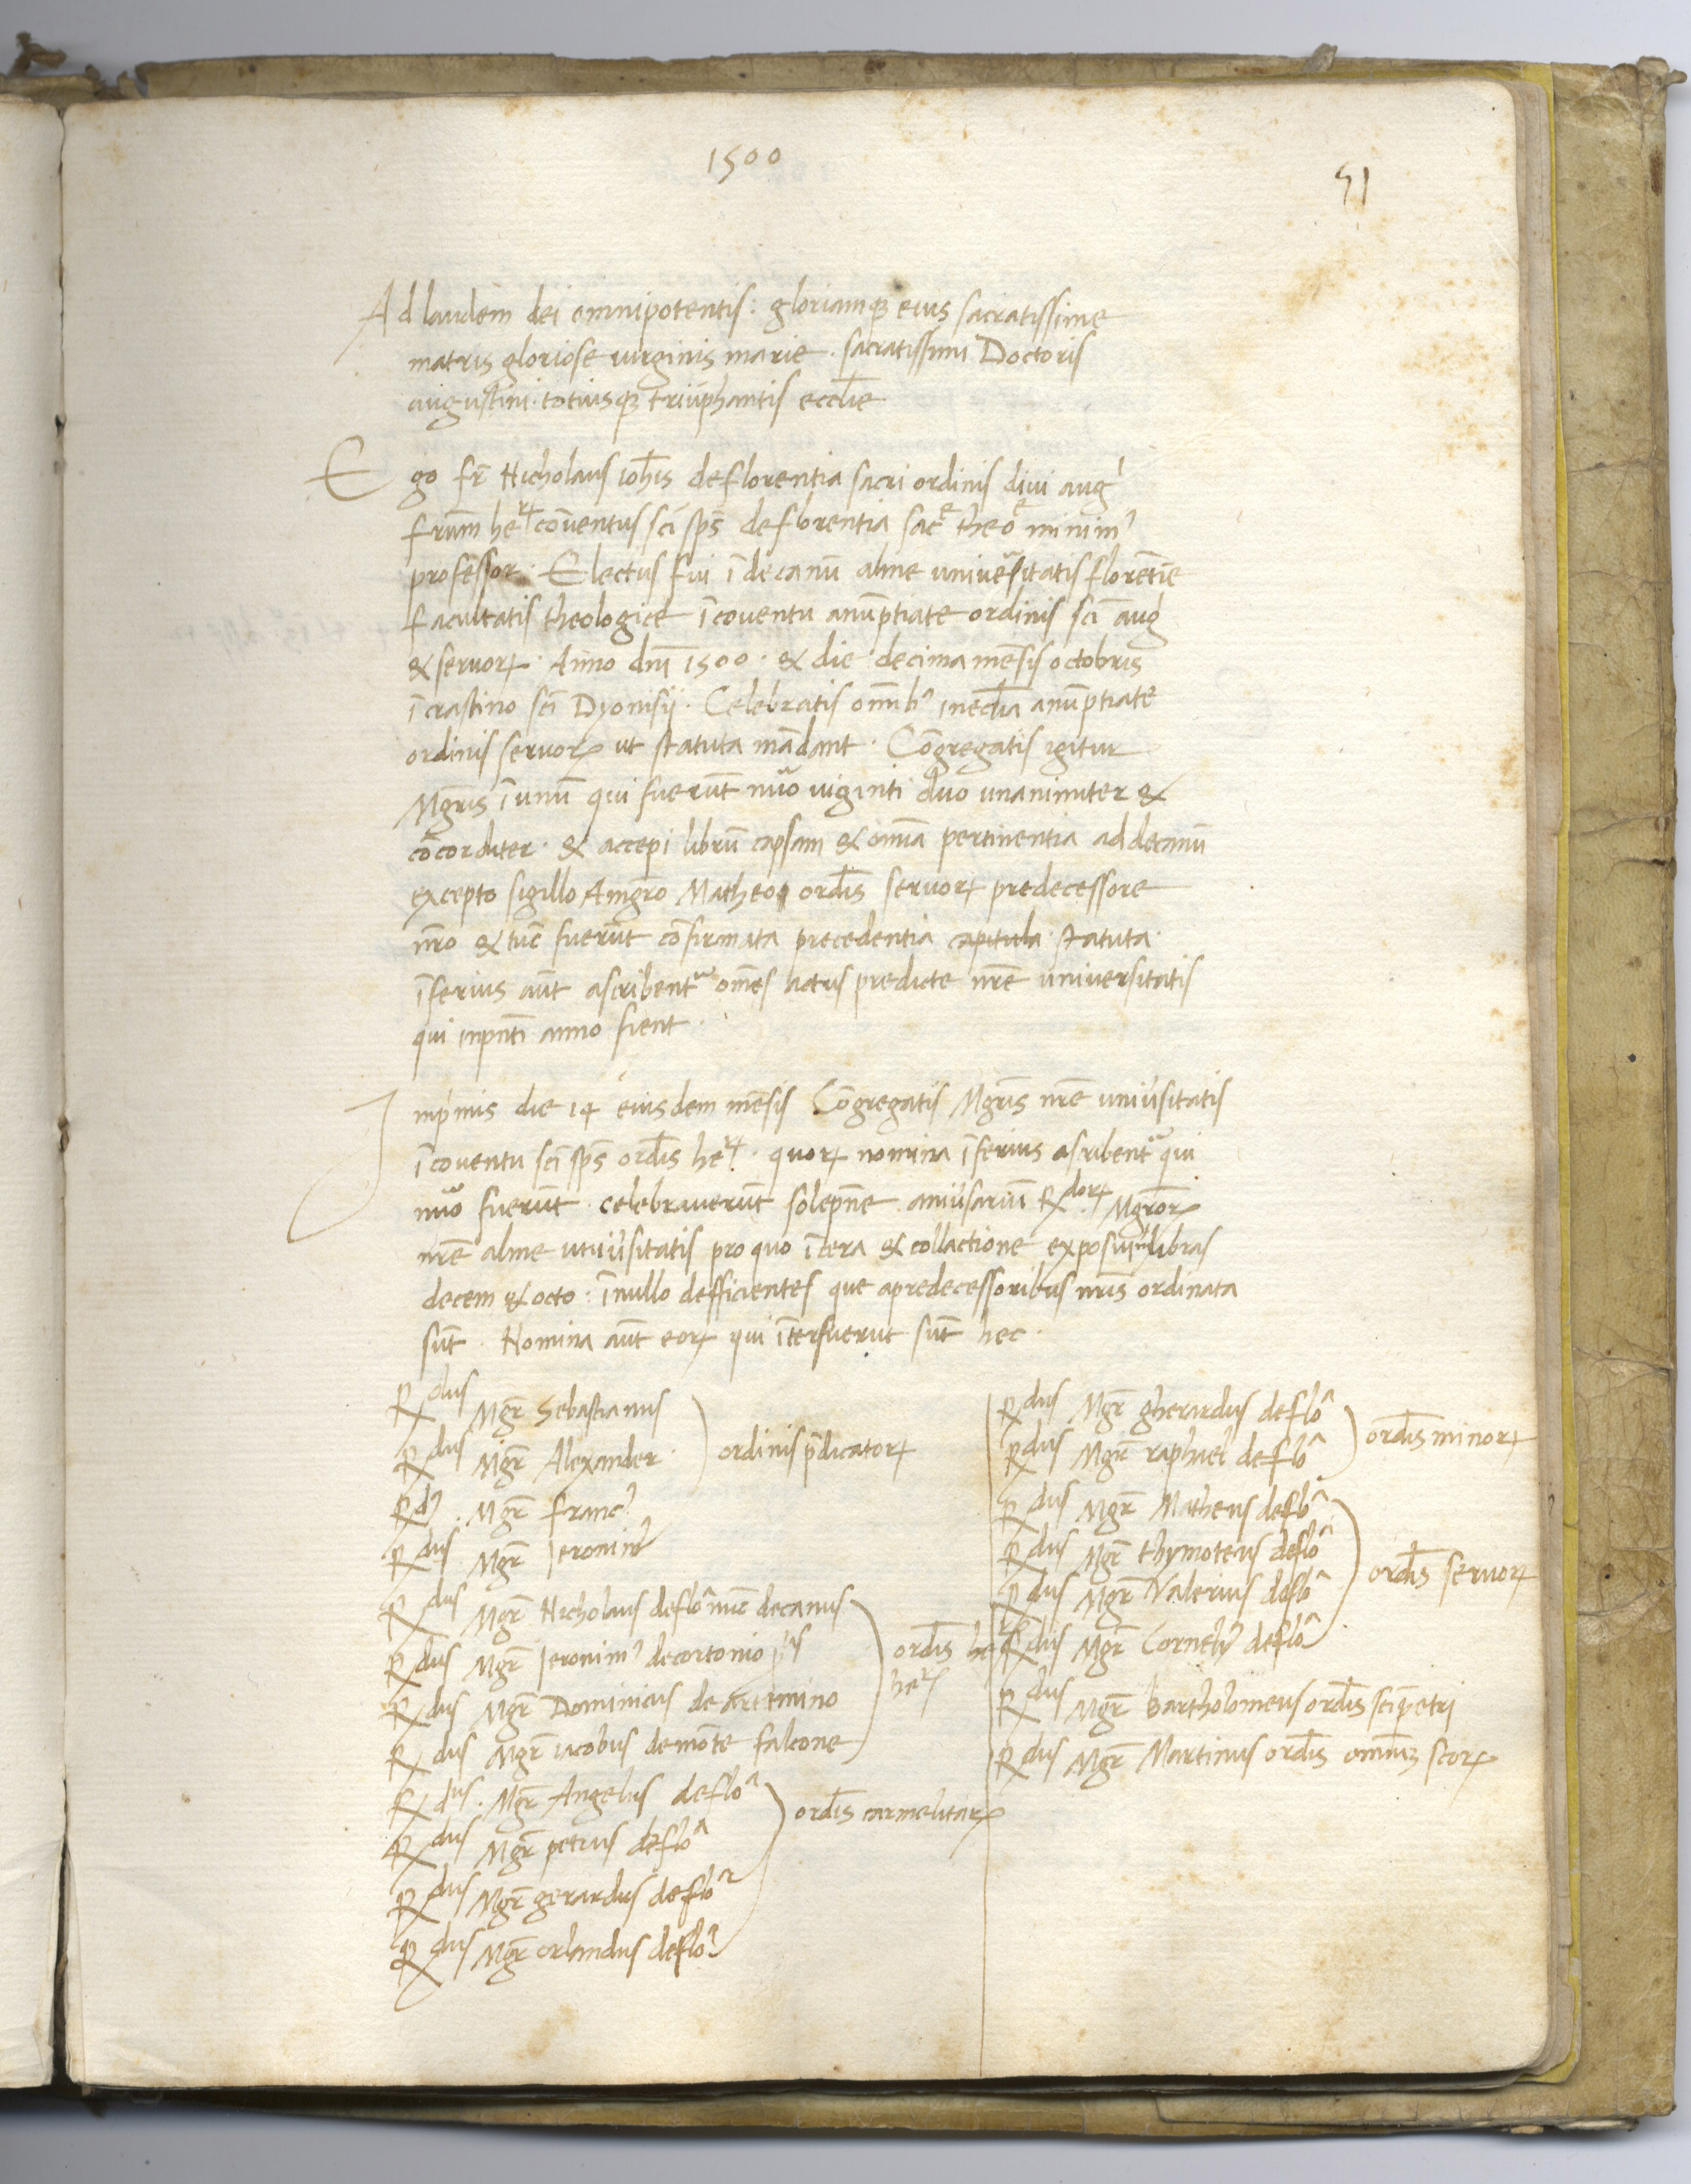 1500
51
Ad laudem dei omnipotentis: gloriamqꝫ eius sacratissime
matris gloriose virginis marie. sacratissimi Doctoris
augustini. totiusqꝫ triūphantis eccl̄ie
Ego fr̄ Nicholaus ioh̄is de florentia sacri ordinis diui aug
fr̄um heꝝ cōventus sc̄i sp̄s de florentia sacᵉ theoᵉ minim᾽
professor. Electus fui ī decanū alme uniuersitatis florētie
facultatis theologice ī cōventu anūptiate ordinis sc̄i aug
& seruoꝝ. Anno dn̄i 1500. & die decima mēsis octobris
ī crastino sc̄i Dyonisij. Celebratis om̄ib᾽ in eccl̄ia anūptiate
ordinis seruoꝝ ut statuta mādant. Cōgregatis igitur
Mgr̄is ī unū qui fuerūt nūo uiginti duo unanimiter &
cōcorditer. & accepi librū capsam & om̄ia pertinentia ad decanū
excepto sigillo A mgr̄o Matheo ord̄is seruoꝝ predecessore
nr̄o & tūc fuerūt cōfirmata precedentia capitula statuta.
īferius aūt ascribentᵘʳ om̄es actus predicte nr̄e uniuersitatis
qui in pn̄ti anno fient.
Inp᾽mis die 14 eiusdem mēsis Cōgregatis Mgr̄is nr̄e uniu᾽sitatis
ī cōventu sc̄i sp̄s ord̄is heꝝ. quoꝝ nomina īferius asribentᵘʳ qui
nūo fuerūt celebrauerūt solepn̄e anniu᾽sariū Rᵈᵒꝝ Mgr̄oꝝ
nr̄e alme uniu᾽sitatis pro quo ī cera & collactione exposui libras
decem & octo. ī nullo defficientes que a predecessoribus nr̄is ordinata
sūt. Nomina aūt eoꝝ qui īterfuerūt sūt hec.
Rᵈᵘˢ Mgr̄ Sebastianus
Rᵈᵘˢ Mgr̄ Alexander. ordinis p̄dicatoꝝ
Rᵈ᾽. Mgr̄ franc᾽
Rᵈᵘˢ Mgr̄ Ieronim᾽
Rᵈᵘˢ Mgr̄ Nicholaus de floᵃ nūc decanus
Rᵈᵘˢ Mgr̄ Ieronim᾽ de cortonio ord̄is he
Rᵈᵘˢ Mgr̄ Dominicus de artimino heꝝ
Rᵈᵘˢ Mgr̄ iacobus de mōte falcone
Rᵈᵘˢ. Mgr̄ Angelus de floᵃ ord̄is carmelitaꝝ
Rᵈᵘˢ Mgr̄ petrus de floᵃ
Rᵈᵘˢ Mgr̄ gerardus de floᵃ
Rᵈᵘˢ Mgr̄ orlandus de floᵃ
Rᵈᵘˢ Mgr̄ gherardus de floᵃ ord̄is minoꝝ
Rᵈᵘˢ Mgr̄ raphael de floᵃ
Rᵈᵘˢ Mgr̄ Matheus de floᵃ
Rᵈᵘˢ Mgr̄ thymoteus de floᵃ ord̄is seruoꝝ
Rᵈᵘˢ Mgr̄ Valerius de floᵃ
Rᵈᵘˢ Mgr̄ Corneli᾽ de floᵃ
Rᵈᵘˢ Mgr̄ Bartholomeus ord̄is sc̄i petri
Rᵈᵘˢ Mgr̄ Martinus ord̄is omniū sc̄oꝝ